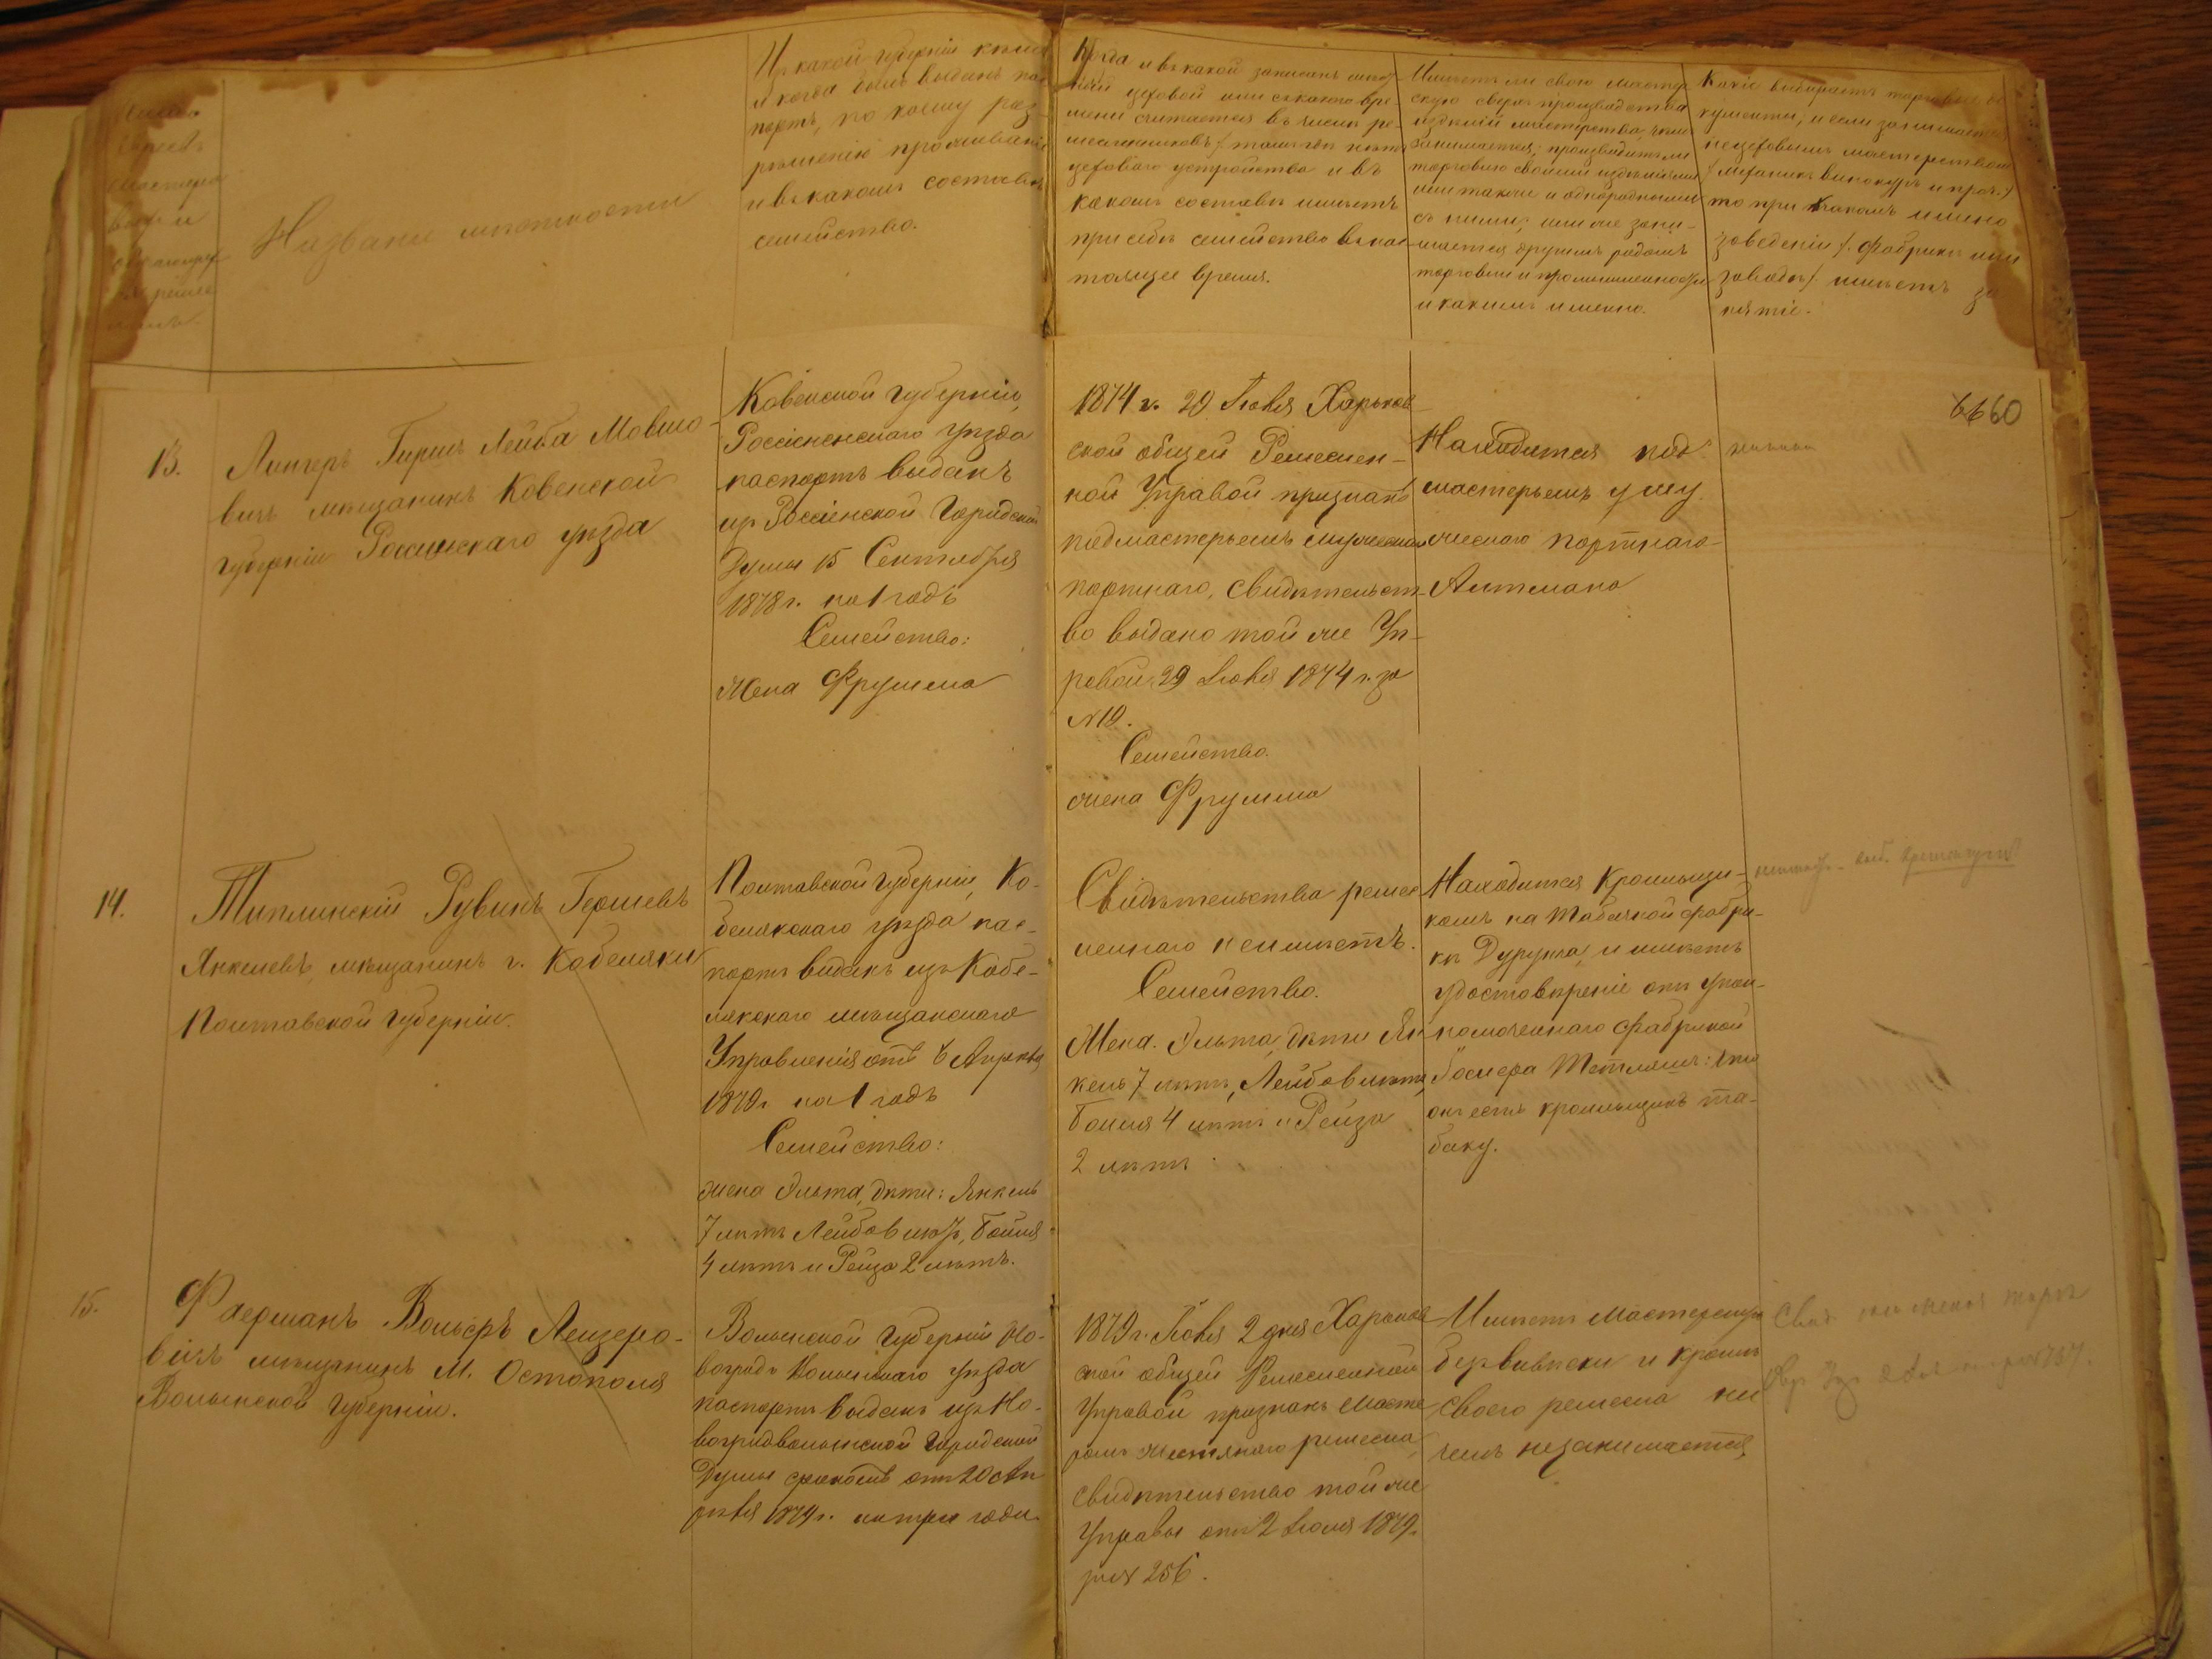 Число
евреевъ
мастеро
въ и
Названіе мѣстности
Изъ какой губерніи къмъ
и когда былъ выданъ пас
портъ, по коему раз-
рѣшенію проживаніе
и въ какомъ составѣ
семейство.
Когда и въ какой записанъ
цеховой или съ какого вре-
мени считается въ числѣ ре-
месленниковъ (тамъ гдѣ нѣтъ
цеховаго устройства и въ
какомъ составѣ имѣетъ
при себѣ семейство въ нас-
тоящее время.
Имѣетъ ли свою мастер
скую сверхъ производства
издѣлій мастерства, чѣмъ
занимается; производитъ ли
торговлю своими издѣліями
или также и однородными
съ ними, или же зани-
мается другимъ родомъ
торговли и промышленности
и какимъ именно.
Какіе выбираетъ торговые до
кументы, и если занимается
нецеховымъ мастерствомъ
(механикъ винокуръ и проч.)
то при какомъ имянно
заведеніи (фабрикѣ или
заводѣ) имѣетъ за
нятіе.
6660
13.
Лингеръ Гиршъ Лейба Мовшо-
вичъ мѣщанинъ Ковенской
губерніи Россіенскаго уѣзда
Ковенской губерніи,
Россіенскаго уѣзда
паспортъ выданъ
изъ Россіенской Городской
Думы 15 Сентября
1878 г. на 1 годъ
Семейство:
Жена Фрумма
1874 г. 29 Іюня Харьков
ской общей Ремеслен-
ной Управой признанъ
подмастерьемъ мужескаго
портнаго, свидѣтельст-
во выдано той же Уп-
равой 29 Іюня 1874 г. за
№ 19.
Семейство.
жена Фрумма
Находится под
мастерьемъ у му
жескаго портнаго
Алтмана
14.
Типлинскій Рувинъ Гершевъ
Янкелевъ, мѣщанинъ г. Кобеляки
Полтавской губерніи.
Полтавской губерніи, Ко-
беляксаго уѣзда пас-
портъ виданъ изъ Кобе-
лякскаго мѣщанскаго
Управленія отъ 6 Апрѣля
1879 г. на 1 годъ
Семейство:
жена Эльта, дѣти: Янкель
7 лѣтъ Лейба 6 лѣтъ, Бейля
4 лѣтъ и Рейза 2 лѣтъ.
Свидѣтельства ремес
леннаго неимѣетъ.
Семейство.
Жена Эльта, дѣти Ян
кель 7 лѣтъ, Лейба 6 лѣтъ,
Бейля 4 лѣтъ и Рейза
2 лѣтъ.
Находится Крошильщи-
комъ на табачной фабри-
кѣ Дурунга, и имѣетъ
удостовѣреніе отъ упол-
номоченнаго фабрикой
что
онъ есть крошильщикъ та-
баку.
15.
Фаерманъ Вольфъ Лейзеро-
вичъ мѣщанинъ М. Остополя
Волынской губерніи.
Волынской губерніи Но-
воградъ Волынскаго уѣзда
паспортъ виданъ изъ Но-
воградволынской Городской
Думы срокомъ отъ 20 Ап
рѣля 1879 г. на три года
1879 г. Іюня 2 дня Харьков
ской общей Ремесленной
Управой признанъ масте
ромъ жестянаго ремесла,
свидѣтельство той же
Управы отъ 2 Іюня 1879 г.
за № 256.
Имѣетъ Мастерскую
безъ вывѣски и кромѣ
своего ремесла ни
чемъ незанимается